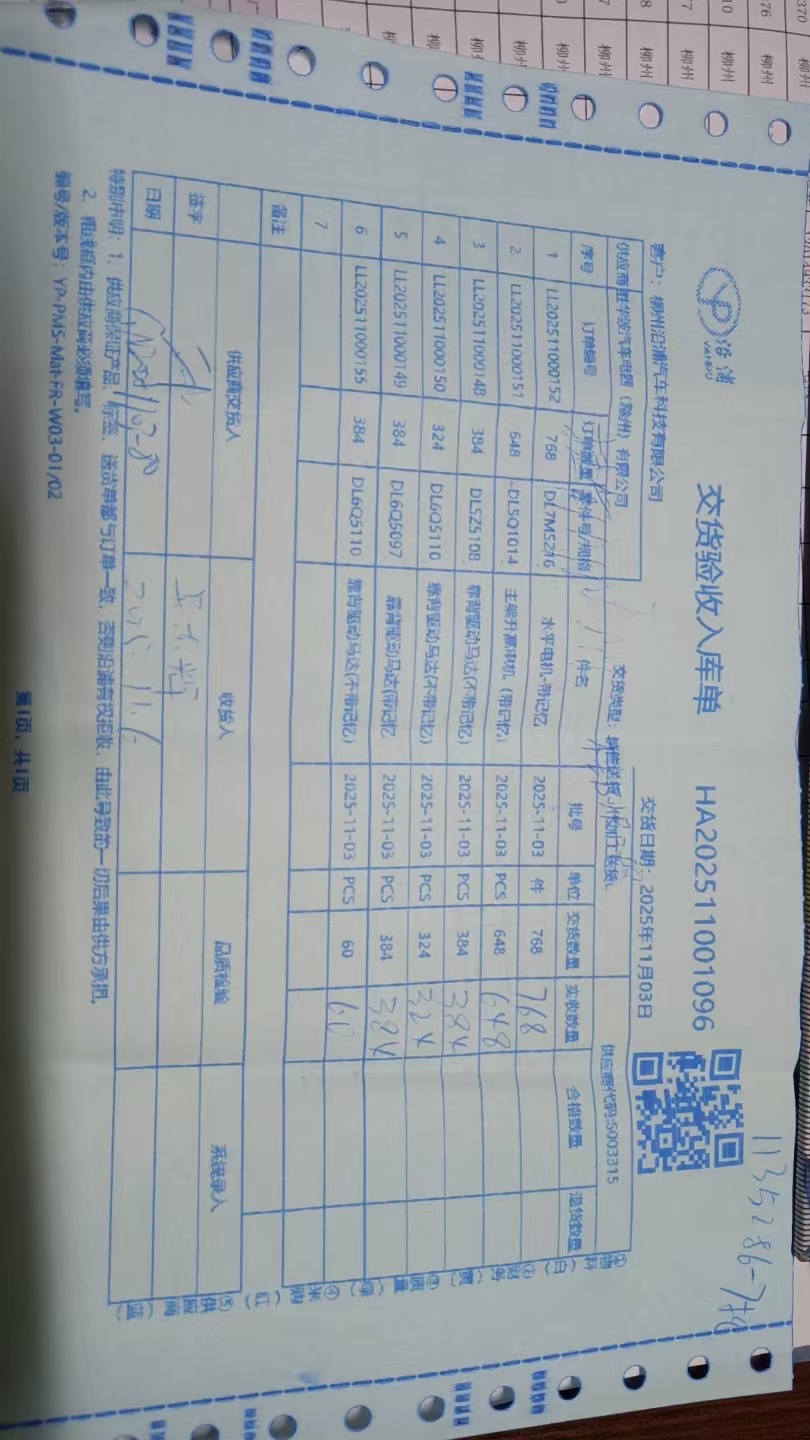 沿浦
YANPU
交货验收入库单 HA202511001096
1135286-778
客户：柳州沿浦汽车科技有限公司
交货日期：2025年11月03日
华波汽车电器（滁州）有限公司
交货类型：销售送货
供应商代码:S003315
序号 订单编号 订单数量 零件号/规格 件名 批号 单位 交货数量 实收数量 合格数量 退货数量
1 LL202511000152 768 DL7M5216 水平电机-带记忆 2025-11-03 件 768 768
2 LL202511000151 648 DL5Q1014 主架升高电机（带记忆） 2025-11-03 PCS 648 648
3 LL202511000148 384 DL5Z5108 靠背驱动马达(不带记忆) 2025-11-03 PCS 384 384
4 LL202511000150 324 DL6Q5110 靠背驱动马达(不带记忆) 2025-11-03 PCS 324 324
5 LL202511000149 384 DL6Q5097 靠背驱动马达(带记忆 2025-11-03 PCS 384 384
6 LL202511000155 384 DL6Q5110 靠背驱动马达(不带记忆) 2025-11-03 PCS 60 60
7
备注
供应商交货人 收货人 品质检验 系统录入
签字
日期 2025.11.6
特别申明：1、供应商保证产品、标签、送货单都与订单一致，否则沿浦有权拒收，由此导致的一切后果由供方承担。
2、粗线框内由供应商必须填写。
编号/版本号：YP-PMS-Mat-FR-W03-01/02
第1页，共1页
①物料（白）
②财务（黄）
③质量（绿）
④采购（红）
⑤供应商（蓝）